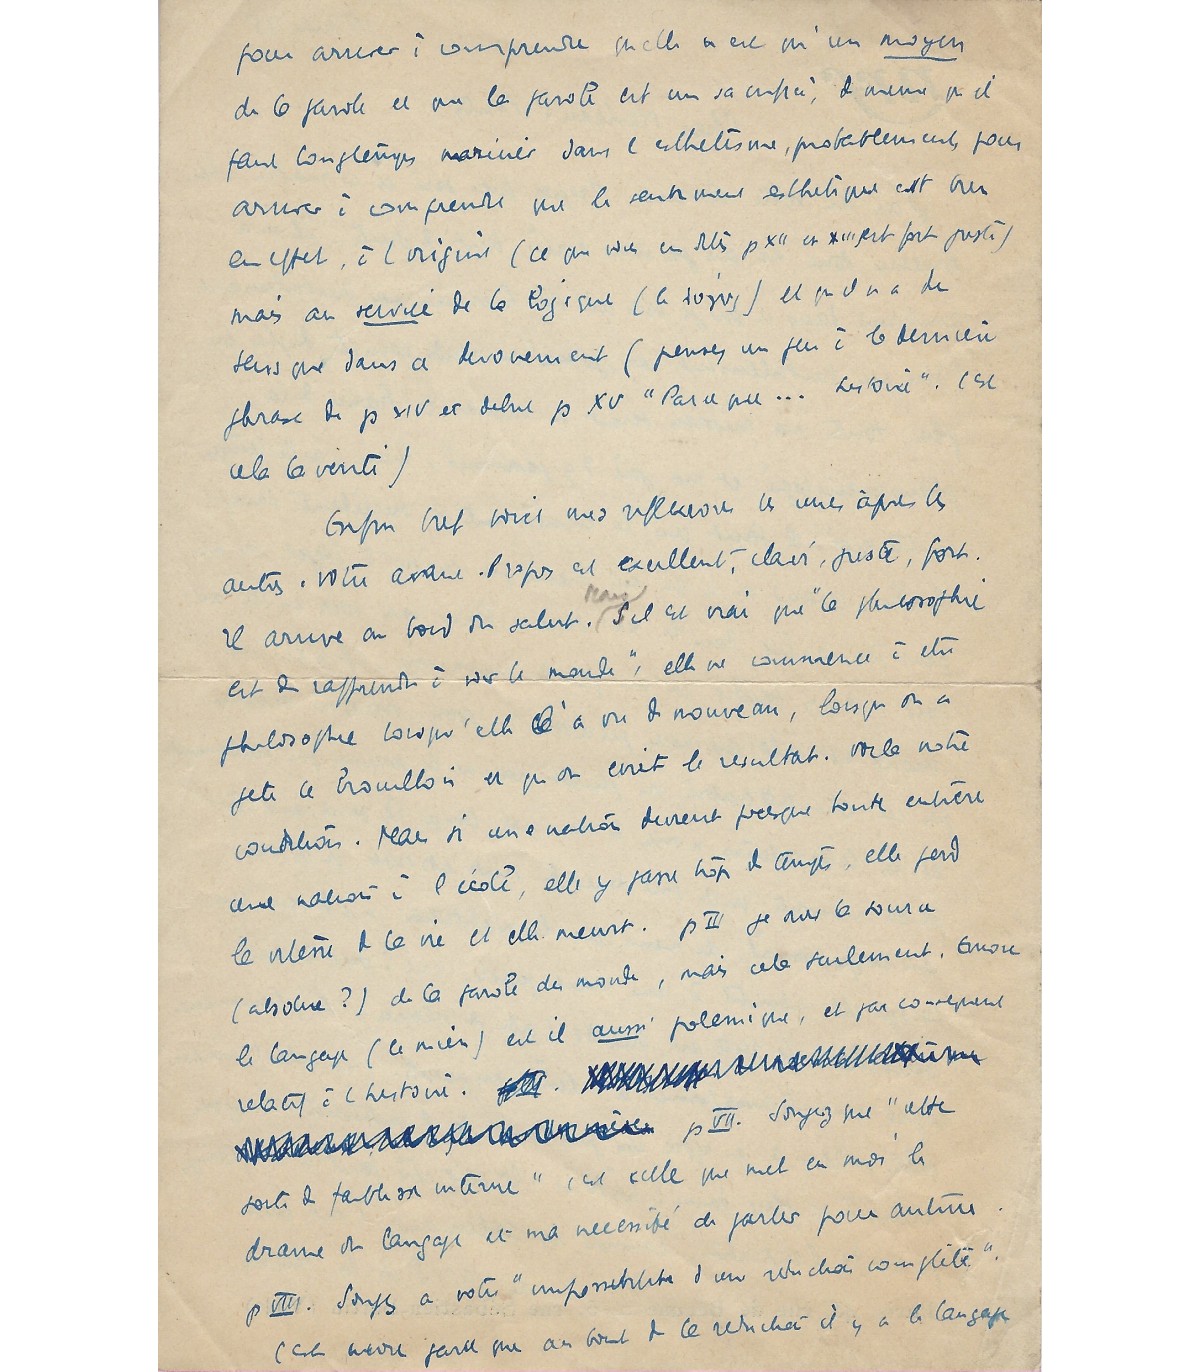 pour arriver à comprendre qu'elle n'est qu'un moyen
de la parole et que la parole est un sacrifice, de meme qu'il
faut longtemps mariner dans l'esthetisme, probablement, pour
arriver à comprendre que le sentiment esthetique est bien
en effet, à l'origine (ce que vous en dites p XII et XIII est fort juste)
mais au service de la logique (le λόγος) et qu'il n'a de
sens que dans ce devouement (pensez un peu à la derniere
phrase de p XIV et debut p XV "Parce que ... histoire". C'est
cela la verité)
Enfin bref voici mes reflexions les unes après les
autres. Votre avant-Propos est excellent, clair, juste, fort.
Il arrive au bord du salut. Mais S'il est vrai que "la philosophie
est de rapprendre à voir le monde", elle ne commence à etre
philosophie lorsqu'elle l'a vu de nouveau, lorsqu'on a
jeté le brouillon et qu'on ecrit le resultat. Voila notre
condition. Mais si une nation devient presque toute entière
une nation à l'école, elle y passe trop de temps, elle perd
la vitesse de la vie et elle meurt. p III je suis la source
(absolue ?) de la parole du monde, mais cela seulement. Encore
le langage (le mien) est il aussi polemique, et par consequent
relatif à l'histoire.
p VII. Songez que "cette
sorte de faiblesse interne" c'est celle qui met en moi le
drame du langage et ma necessité de parler pour autrui.
p VIII. Songez a votre "impossibilité d'une réduction complète".
C'est encore parce que au bout de la réduction il y a le langage